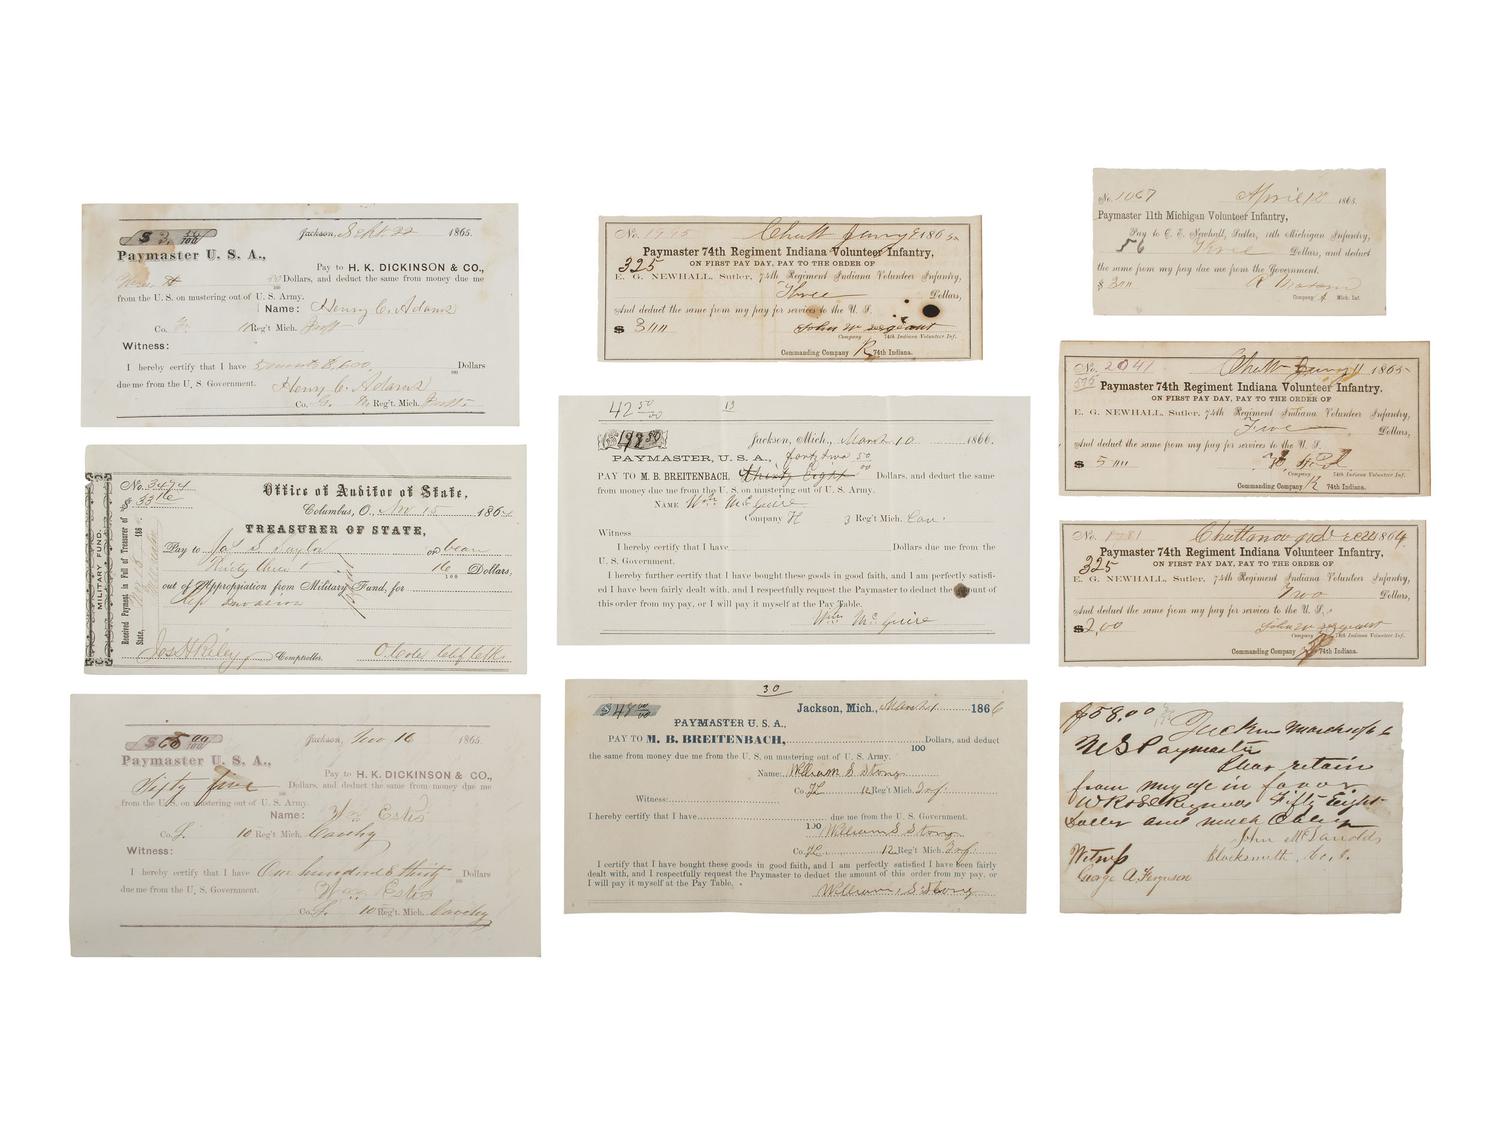 $ 3 00/100
Jackson, Sept. 22 1865.
Paymaster U. S. A.,
Pay to H. K. DICKINSON & CO.,
Dollars, and deduct the same from money due me
from the U. S. on mustering out of U. S. Army.
Name: Henry C. Adams
Co. G. 11 Reg't Mich.
Witness:
I hereby certify that I have Dollars
due me from the U. S. Government. Henry C. Adams
Co. G. Reg't. Mich.
MILITARY FUND.
Received Payment in Full of Treasurer of State, 186
No. 3474
$ 33 16
Office of Auditor of State,
Columbus, O., Nov 15 1864
TREASURER OF STATE,
Pay to Jas S Taylor or bearer
Thirty three & 16/100 Dollars,
out of Appropriation from Military Fund, for
Rep Invasion
Jos H Riley Comptroller.
$ 65 00/100
Jackson, Nov 16 1865.
Paymaster U. S. A.,
Pay to H. K. DICKINSON & CO.,
Fifty five Dollars, and deduct the same from money due me
from the U. S. on mustering out of U. S. Army.
Name: Wm Estes
Co. L. 10 Reg't Mich. Cavalry
Witness:
I hereby certify that I have One hundred & thirty Dollars
due me from the U. S. Government. Wm Estes
Co. L. 10 Reg't. Mich. Cavalry
No. 1995 Chatt Jany 9 1865
Paymaster 74th Regiment Indiana Volunteer Infantry,
325 ON FIRST PAY DAY, PAY TO THE ORDER OF
E. G. NEWHALL, Sutler, 74th Regiment Indiana Volunteer Infantry,
Three Dollars,
And deduct the same from my pay for services to the U. S.
$ 3
John W Sergeant
Company 74th Indiana Volunteer Inf.
Commanding Company K 74th Indiana.
42 50/00 13
Jackson, Mich., March 10 1866.
PAYMASTER, U. S. A., forty two 50/00
PAY TO M. B. BREITENBACH, thirty Eight Dollars, and deduct the same
from money due me from the U. S. on mustering out of U. S. Army.
NAME Wm McGuire
Company H 3 Reg't Mich. Cav.
Witness
I hereby certify that I have Dollars due me from the
U. S. Government.
I hereby further certify that I have bought these goods in good faith, and I am perfectly satisfi-
ed I have been fairly dealt with, and I respectfully request the Paymaster to deduct the amount of
this order from my pay, or I will pay it myself at the Pay Table.
Wm McGuire
30
$ 48 00/00
Jackson, Mich., March 1 1866
PAYMASTER U. S. A.,
PAY TO M. B. BREITENBACH, Dollars, and deduct
100
the same from money due me from the U. S. on mustering out of U. S. Army.
Name: William S Stong
Co. H 12 Reg't Mich. Inf.
Witness:
I hereby certify that I have due me from the U. S. Government.
100 William S Stong
Co. H 12 Reg't Mich. Inf.
I certify that I have bought these goods in good faith, and I am perfectly satisfied I have been fairly
dealt with, and I respectfully request the Paymaster to deduct the amount of this order from my pay, or
I will pay it myself at the Pay Table.
William S Stong
No. 1067 April 12 1865.
Paymaster 11th Michigan Volunteer Infantry,
Pay to C. E. Newhall, Sutler, 11th Michigan Infantry,
56 Three Dollars, and deduct
the same from my pay due me from the Government.
$ 3
Company A Mich. Inf.
No. 2041 Chatt Jany 11 1865
Paymaster 74th Regiment Indiana Volunteer Infantry.
ON FIRST PAY DAY, PAY TO THE ORDER OF
E. G. NEWHALL, Sutler, 74th Regiment Indiana Volunteer Infantry,
Five Dollars,
And deduct the same from my pay for services to the U. S.
$ 5
Company 74th Indiana Volunteer Inf.
Commanding Company K 74th Indiana.
No. 1281 Chattanooga Dec 20 1864.
Paymaster 74th Regiment Indiana Volunteer Infantry,
325 ON FIRST PAY DAY, PAY TO THE ORDER OF
E. G. NEWHALL, Sutler, 74th Regiment Indiana Volunteer Infantry,
Two Dollars,
And deduct the same from my pay for services to the U. S.
$2,00 John W Sergeant
Company 74th Indiana Volunteer Inf.
Commanding Company K 74th Indiana.
$58.00 Jackson March
U S Paymaster
Pleas retain
from my pay in favor
Fifty Eight
Doller and much Oblige
John McDanolds
Blacksmith, Co.
Witness
George A. Ferguson